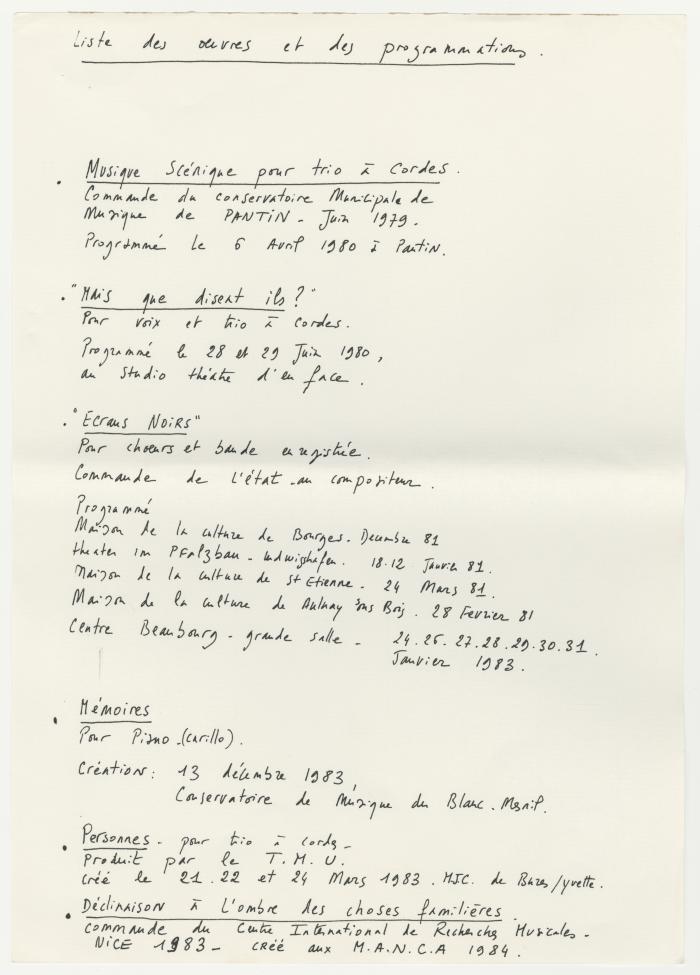 Liste des œuvres et des programmations.
. Musique Scénique pour trio à Cordes.
Commande du conservatoire Municipale de
Musique de PANTIN - Juin 1979.
Programmé le 6 Avril 1980 à Pantin.
. "Mais que disent ils ?"
Pour voix et trio à cordes.
Programmé le 28 et 29 Juin 1980,
au Studio théâtre d'en face.
. "Ecrans NOIRS"
Pour chœurs et bande enregistrée.
Commande de l'état au compositeur.
Programmé
Maison de la culture de Bourges - Decembre 81
theater im PFalzbau - Ludwigshafen. 18.12 Janvier 81.
Maison de la culture de St Etienne - 24 Mars 81.
Maison de la culture de Aulnay sous Bois. 28 Fevrier 81
Centre Beaubourg - grande salle - 24.25.27.28.29.30.31.
Janvier 1983.
. Mémoires
Pour Piano - (Carillo).
Création : 13 décembre 1983,
Conservatoire de Musique du Blanc. Mesnil.
. Personnes - pour trio à cordes -
Produit par le T.M.U.
créé le 21.22 et 24 Mars 1983. MJC. de Bures/yvette.
. Déclinaison à L'ombre des choses familières.
commande du Centre International de Recherches Musicales -
NICE 1983 - créé aux M.A.N.C.A 1984.